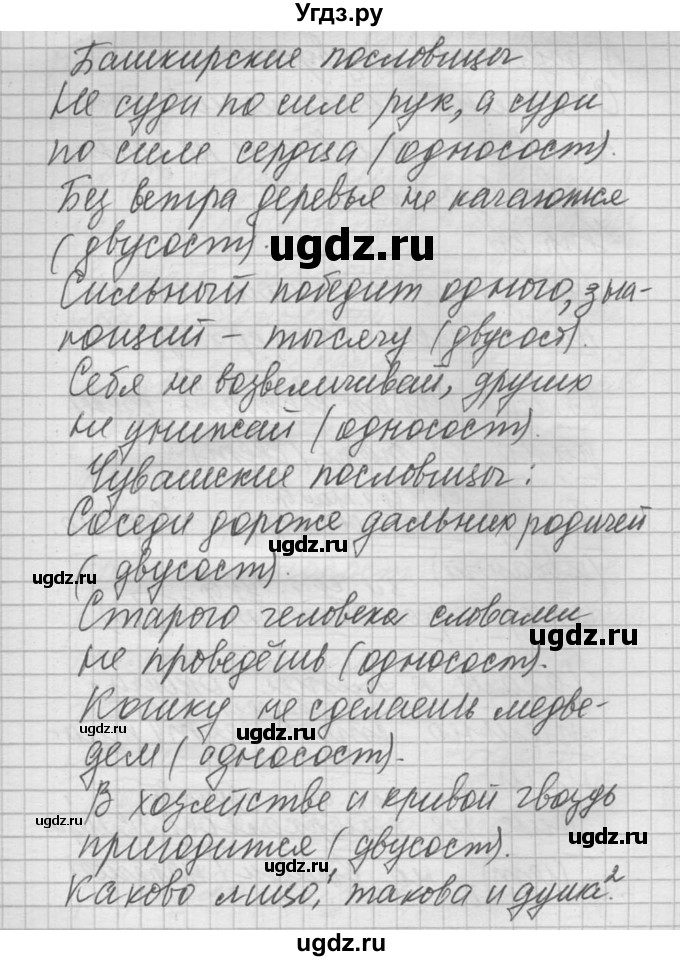 Угдз.ру
Башкирские пословицы
Не суди по силе рук, а суди
по силе сердца (односост).
Без ветра деревья не качаются
(двусост).
ugdz.ru
Сильный победит одного, зна-
ющий – тысячу (двусост).
Себя не возвеличивай, других
не унижай (односост).
Чувашские пословицы:
Соседи дороже дальних родичей
ugdz.ru
ugdz.ru
(двусост).
ugdz.ru
Старого человека словами
ugdz.ru
не проведёшь (односост).
Кошку не сделаешь медве-
ugdz.ru
ugdz.ru
дем (односост).
В хозяйстве и кривой гвоздь
ugdz.ru
ugdz.ru
пригодится (двусост).
ugdz.ru
ugdz.ru
Каково лицо,¹ такова и душа.²
ugdz.ru